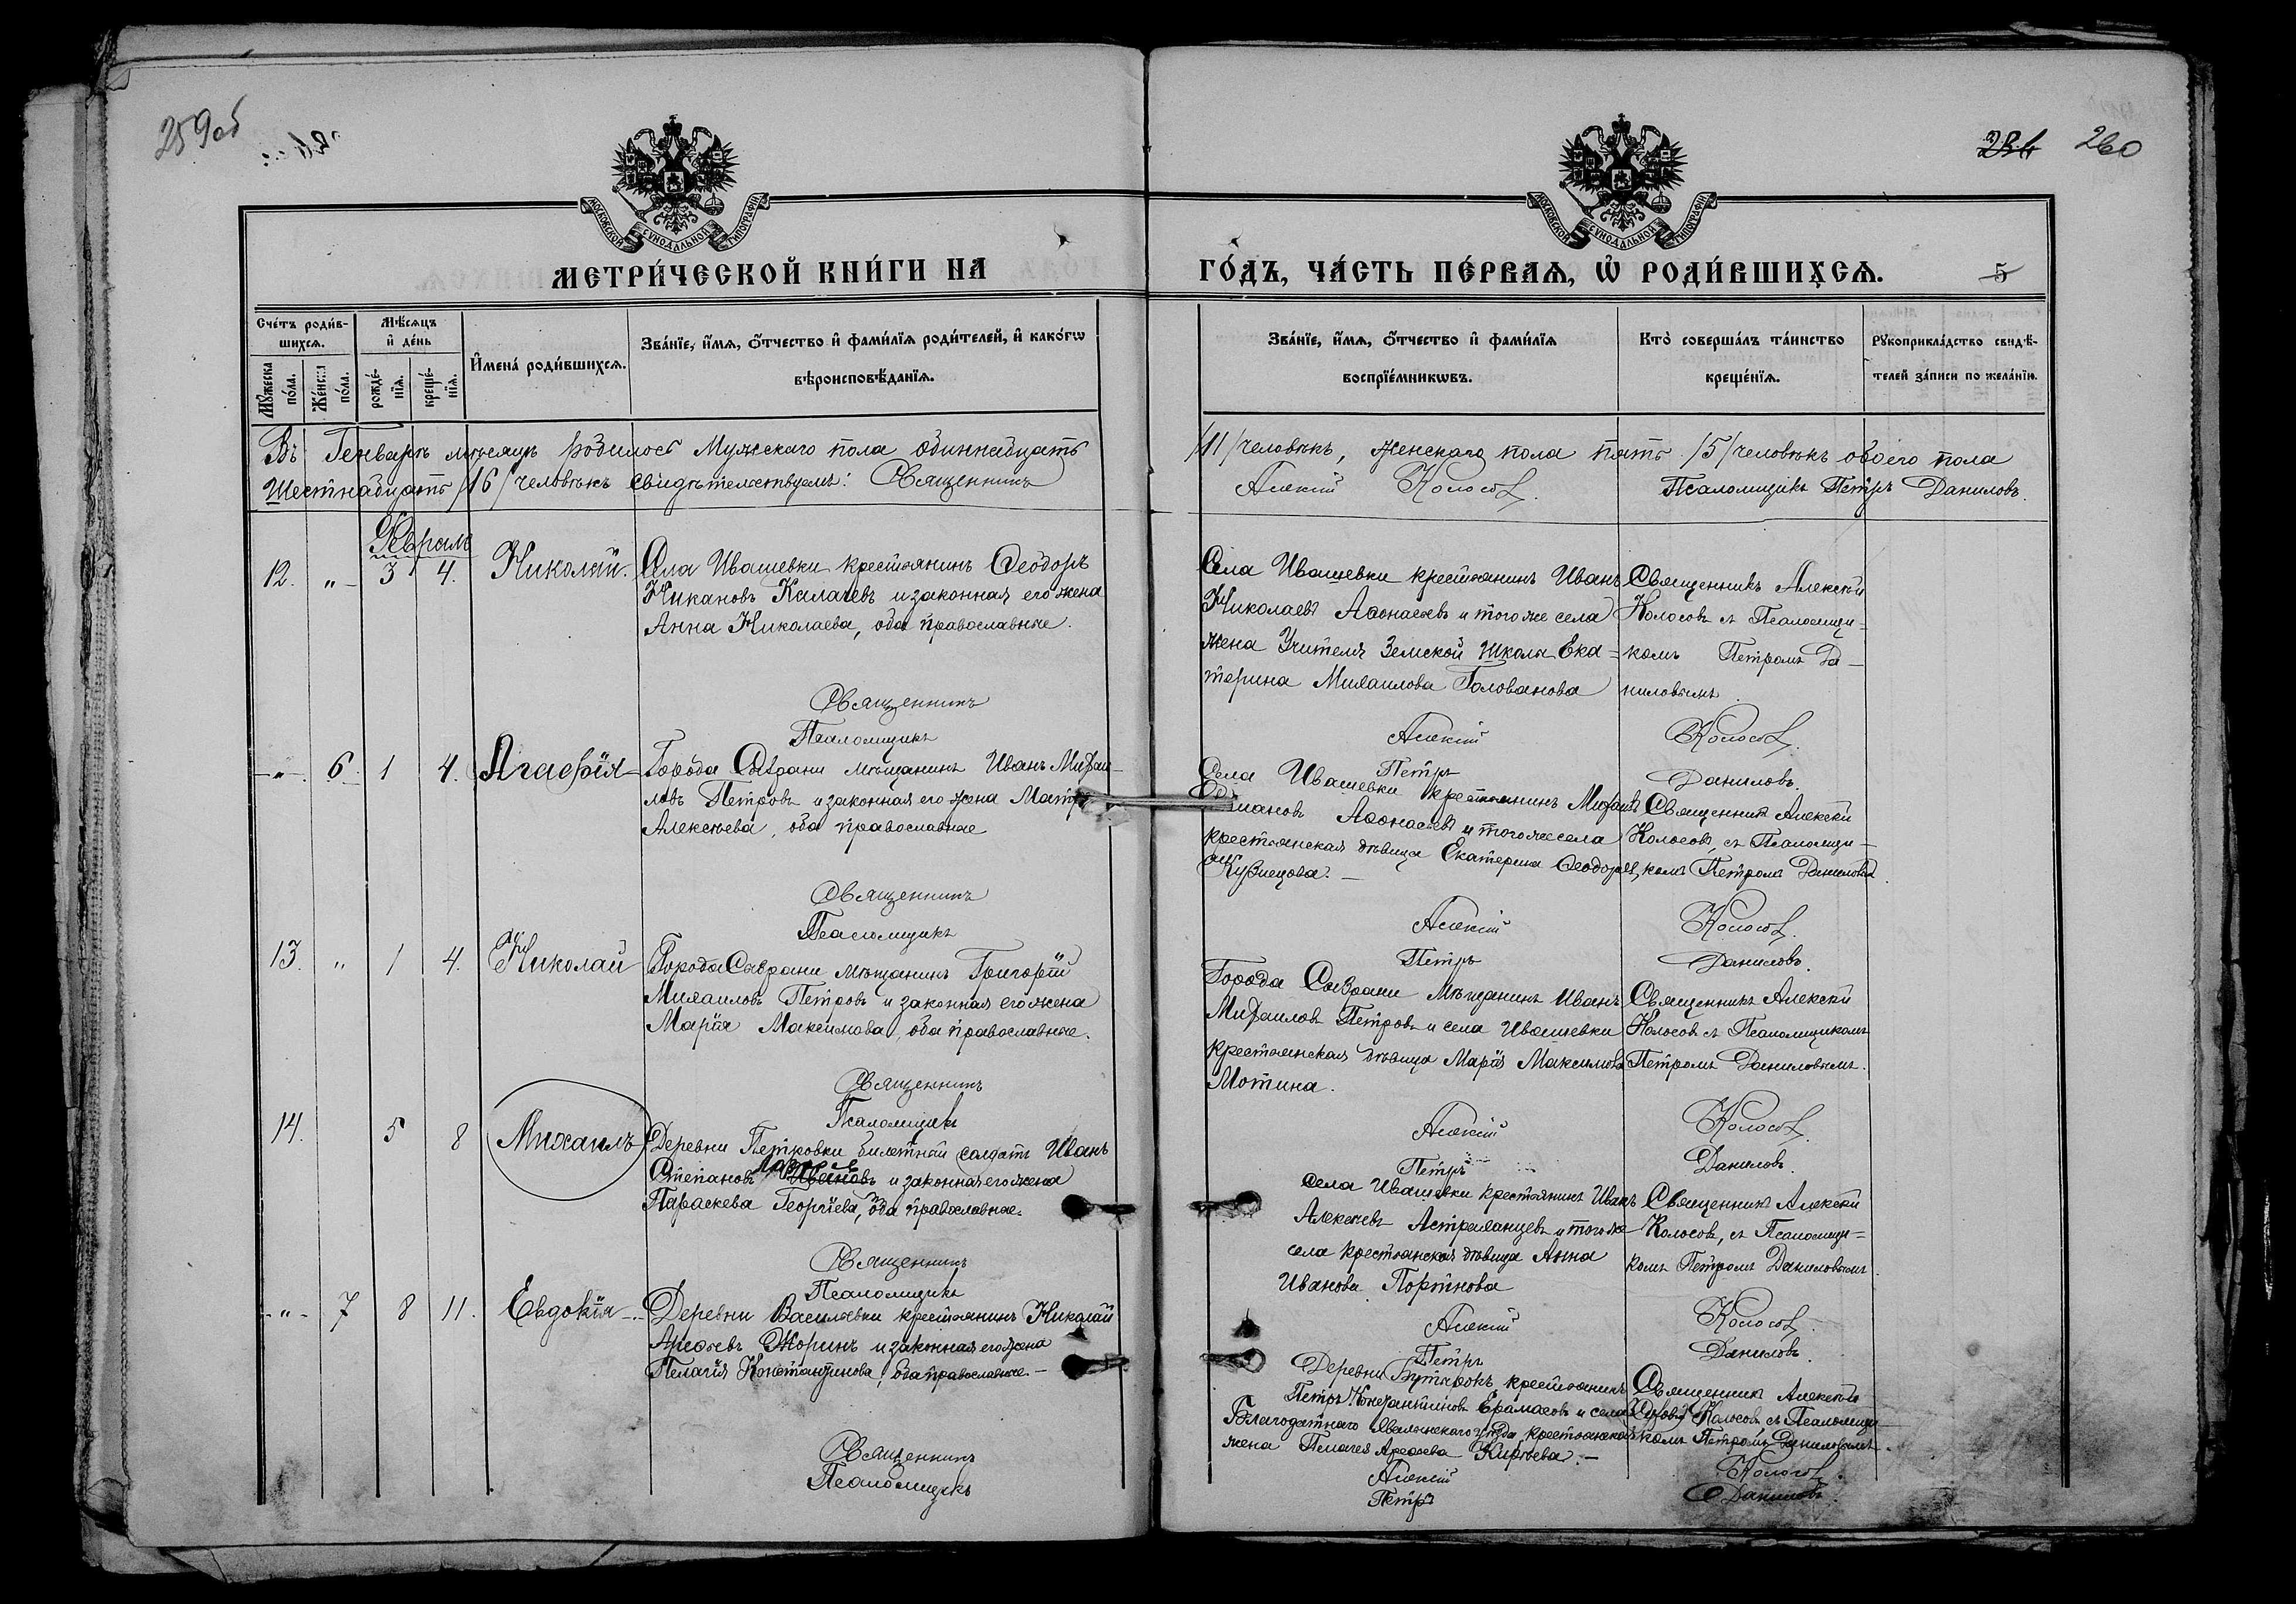 259об
284 260
МОСКОВСКОЙ СѴНОДАЛЬНОЙ ТИПОГРАФІИ
МОСКОВСКОЙ СѴНОДАЛЬНОЙ ТИПОГРАФІИ
МЕТРИ́ЧЕСКОЙ КНИ́ГИ НА ГО́ДЪ, ЧА́СТЬ ПЕ́РВАѦ, Ѡ҆ РОДИ́ВШИХСѦ. 5
Сче́тъ роди́вшихсѧ.
Мꙋ́жеска по́ла.
Же́нска по́ла.
Мѣ́сѧцъ и҆ де́нь
рожде́нїѧ.
креще́нїѧ.
И҆мена̀ роди́вшихсѧ.
Зва́нїе, и҆́мѧ, ѻ҆́тчество и҆ фами́лїѧ роди́телей, и҆ како́гѡ вѣроисповѣ́данїѧ.
Зва́нїе, и҆́мѧ, ѻ҆́тчество и҆ фами́лїѧ воспрїе́мникѡвъ.
Кто̀ соверша́лъ та́инство креще́нїѧ.
Рꙋкоприкла́дство свидѣ́телей за́писи по жела́нїю.
Въ Генварѣ мѣсяцѣ родилось Мужскаго пола одиннадцать /11/ человѣкъ, женскаго пола пять /5/ человѣкъ обоего пола
Шестнадцать /16/ человѣкъ свидѣтельствуемъ: Священникъ Алексій Колосовъ. Псаломщикъ Петръ Даниловъ.
Февраль
12. „ 3 4. Николай.
Села Ивашевки крестьянинъ Ѳеодоръ
Никановъ Калачевъ и законная его жена
Анна Николаева, оба православные.
Села Ивашевки крестьянинъ Иванъ
Николаевъ Аѳонасьевъ и того же села
жена Учителя Земской Школы Ека=
терина Михаилова Голованова
Священникъ Алексѣй
Колосовъ съ Псаломщи-
комъ Петромъ Да-
ниловымъ.
Священникъ Алексій Колосовъ.
Псаломщикъ Петръ Даниловъ.
„ 6. 1 4. Агаѳія
Города Сызрани мѣщанинъ Иванъ Михаи-
ловъ Петровъ и законная его жена
Алексѣева, оба православные
Села Ивашевки крестьянинъ Михаилъ
Аѳонасьевъ и того же села
крестьянская дѣвица Екатерина Ѳеодорова
Кузнецова.
Священникъ Алексѣй
Колосовъ, съ Псаломщи-
комъ Петромъ Даниловымъ.
Священникъ Алексій Колосовъ.
Псаломщикъ Петръ Даниловъ.
13. „ 1 4. Николай
Города Сызрани мѣщанинъ Григорій
Михаиловъ Петровъ и законная его жена
Марія Максимова, оба православные.
Города Сызрани мѣщанинъ Иванъ
Михаиловъ Петровъ и села Ивашевки
крестьянская дѣвица Марія Максимова
Мотина.
Священникъ Алексѣй
Колосовъ съ Псаломщикомъ
Петромъ Даниловымъ.
Священникъ Алексій Колосовъ.
Псаломщикъ Петръ Даниловъ.
14. 5 8 Михаилъ
Деревни Петровки билетный солдатъ Иванъ
Степановъ Ивановъ и законная его жена
Параскева Георгіева, оба православные.
Села Ивашевки крестьянинъ Иванъ
Алексѣевъ Астраханцевъ и того же
села крестьянская дѣвица Анна
Иванова Портнова
Священникъ Алексѣй
Колосовъ, съ Псаломщи=
комъ Петромъ Даниловымъ.
Священникъ Алексій Колосовъ.
Псаломщикъ Петръ Даниловъ.
„ 7 8 11. Евдокія
Деревни Васильевки крестьянинъ Николай
Ареѳьевъ Жоринъ и законная его жена
Пелагія Константинова, оба православные.
Деревни крестьянинъ
Петръ Константиновъ Ерамасовъ и села
Благодатнаго Хвалынскаго уѣзда крестьянская
жена Пелагея Ареѳьева Кирѣева.
Священникъ Алексѣй
Колосовъ съ Псаломщи-
комъ Петромъ Даниловымъ.
Священникъ Алексій Колосовъ.
Псаломщикъ Петръ Даниловъ.